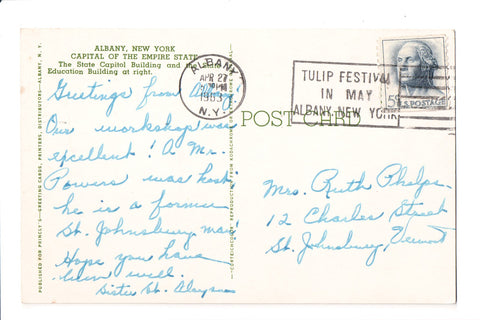 ALBANY, NEW YORK
CAPITAL OF THE EMPIRE STATE
The State Capitol Building and the State
Education Building at right.
Greetings from Albany!
Our workshop was
excellent! A Mr.
Powers was host.
he is a former
St. Johnsbury, man!
Hope you have
been well.
Sister St. Aloysius
PUBLISHED FOR PRINCLY'S—GREETING CARDS, PRINTERS, DISTRIBUTORS—ALBANY, N. Y.
POST CARD
ALBANY
APR 27
PM
1963
N.Y.
TULIP FESTIVAL
IN MAY
ALBANY, NEW YORK
5¢ U.S. POSTAGE
Mrs. Ruth Phelps
12 Charles Street
St. Johnsbury, Vermont